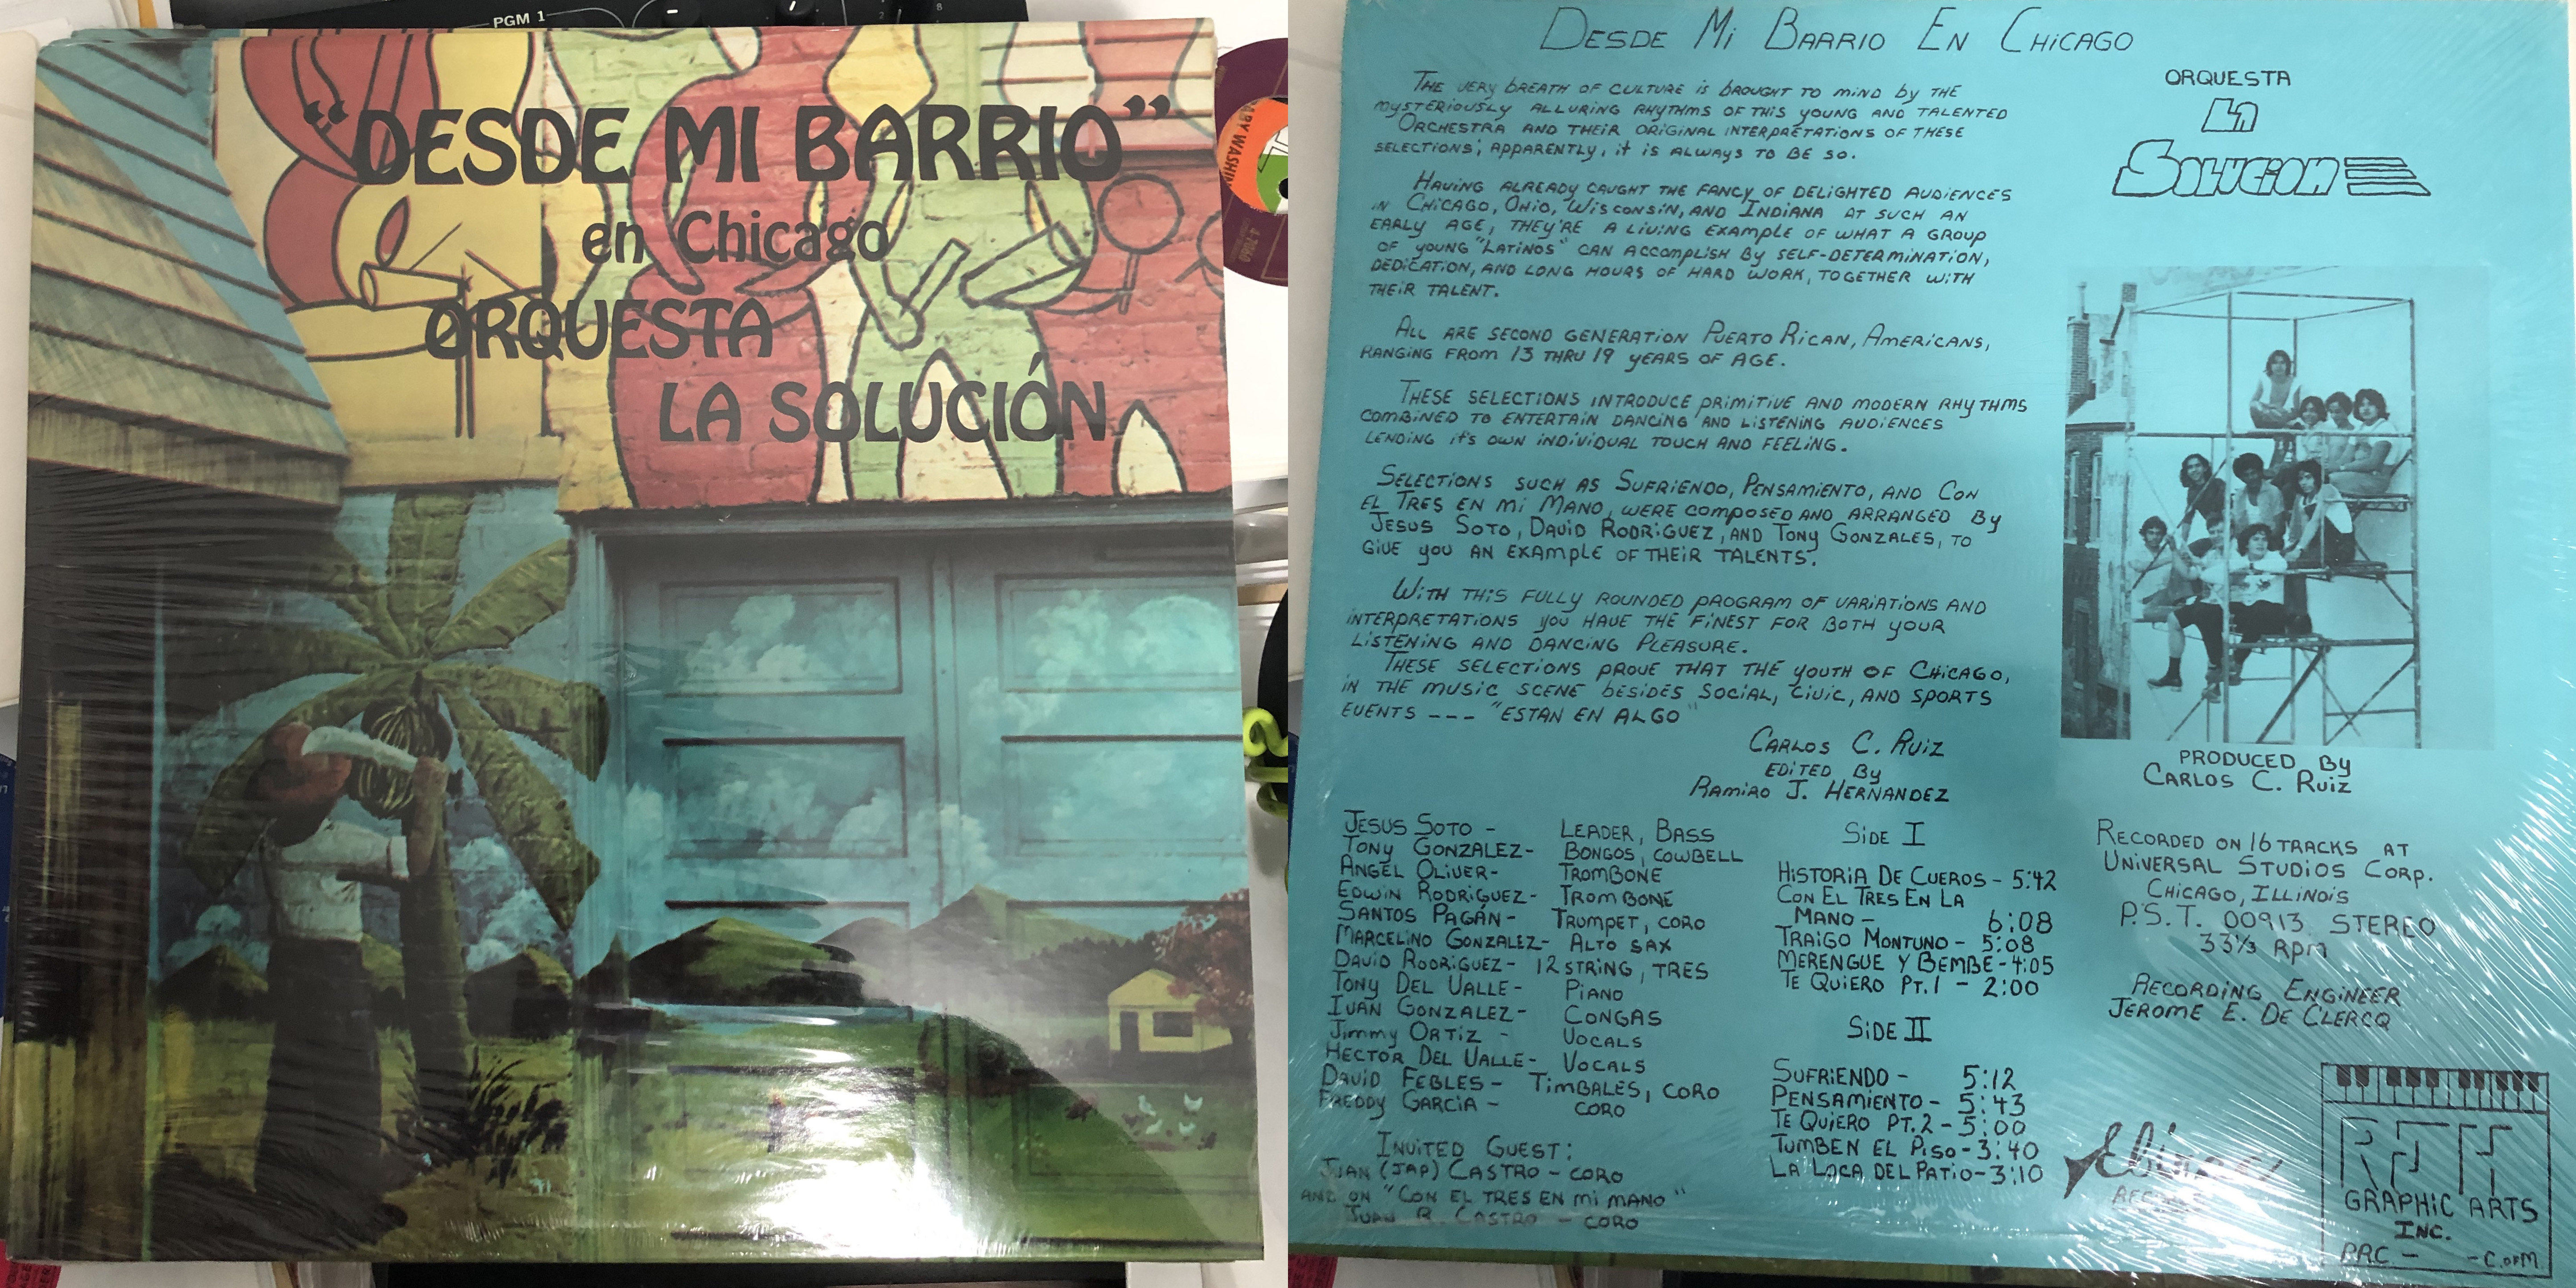 PGM 1
"DESDE MI BARRIO"
en Chicago
ORQUESTA
LA SOLUCIÓN
DESDE MI BARRIO EN CHICAGO
THE VERY BREATH OF CULTURE IS BROUGHT TO MIND BY THE
MYSTERIOUSLY ALLURING RHYTHMS OF THIS YOUNG AND TALENTED
ORCHESTRA AND THEIR ORIGINAL INTERPRETATIONS OF THESE
SELECTIONS; APPARENTLY, IT IS ALWAYS TO BE SO.
HAVING ALREADY CAUGHT THE FANCY OF DELIGHTED AUDIENCES
IN CHICAGO, OHIO, WISCONSIN, AND INDIANA AT SUCH AN
EARLY AGE, THEY'RE A LIVING EXAMPLE OF WHAT A GROUP
OF YOUNG "LATINOS" CAN ACCOMPLISH BY SELF-DETERMINATION,
DEDICATION, AND LONG HOURS OF HARD WORK, TOGETHER WITH
THEIR TALENT.
ALL ARE SECOND GENERATION PUERTO RICAN, AMERICANS,
RANGING FROM 13 THRU 19 YEARS OF AGE.
THESE SELECTIONS INTRODUCE PRIMITIVE AND MODERN RHYTHMS
COMBINED TO ENTERTAIN DANCING AND LISTENING AUDIENCES
LENDING IT'S OWN INDIVIDUAL TOUCH AND FEELING.
SELECTIONS SUCH AS SUFRIENDO, PENSAMIENTO, AND CON
EL TRES EN MI MANO, WERE COMPOSED AND ARRANGED BY
JESUS SOTO, DAVID RODRIGUEZ, AND TONY GONZALES, TO
GIVE YOU AN EXAMPLE OF THEIR TALENTS.
WITH THIS FULLY ROUNDED PROGRAM OF VARIATIONS AND
INTERPRETATIONS YOU HAVE THE FINEST FOR BOTH YOUR
LISTENING AND DANCING PLEASURE.
THESE SELECTIONS PROVE THAT THE YOUTH OF CHICAGO,
IN THE MUSIC SCENE BESIDES SOCIAL, CIVIC, AND SPORTS
EVENTS --- "ESTAN EN ALGO"
CARLOS C. RUIZ
EDITED BY
RAMIRO J. HERNANDEZ
ORQUESTA
LA
SOLUCION
PRODUCED BY
CARLOS C. RUIZ
JESUS SOTO - LEADER, BASS
TONY GONZALEZ- BONGOS, COWBELL
ANGEL OLIVER- TROMBONE
EDWIN RODRIGUEZ- TROMBONE
SANTOS PAGÁN- TRUMPET, CORO
MARCELINO GONZALEZ- ALTO SAX
DAVID RODRIGUEZ- 12 STRING, TRES
TONY DEL VALLE- PIANO
IVAN GONZALEZ- CONGAS
JIMMY ORTIZ - VOCALS
HECTOR DEL VALLE- VOCALS
DAVID FEBLES- TIMBALES, CORO
FREDDY GARCIA - CORO
INVITED GUEST:
JUAN (JAP) CASTRO - CORO
AND ON "CON EL TRES EN MI MANO"
JUAN R. CASTRO - CORO
SIDE I
HISTORIA DE CUEROS - 5:42
CON EL TRES EN LA
MANO - 6:08
TRAIGO MONTUNO - 5:08
MERENGUE Y BEMBE-4:05
TE QUIERO PT.1 - 2:00
SIDE II
SUFRIENDO - 5:12
PENSAMIENTO - 5:43
TE QUIERO PT.2 - 5:00
TUMBEN EL PISO-3:40
LA LOCA DEL PATIO-3:10
RECORDED ON 16 TRACKS AT
UNIVERSAL STUDIOS CORP.
CHICAGO, ILLINOIS
P.S.T. 00913 STEREO
33⅓ RPM
RECORDING ENGINEER
JEROME E. DE CLERCQ
RJH
GRAPHIC ARTS
INC.
PRC - -C.OFM